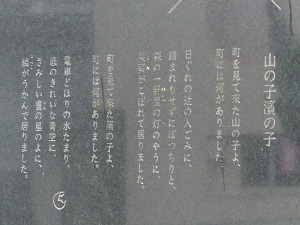 山の子濱の子
町を見て来た山の子よ、
町には何がありました。
日ぐれの辻の人ごみに、
踏まれもせずにぽつちりと、
森の一軒家の灯のやうに、
茱萸がこぼれて居りました。
町を見て来た濱の子よ、
町には何がありました。
電車どほりの水たまり、
底のきれいな青空に、
さみしい晝の星のよに、
鱗がうかんで居りました。